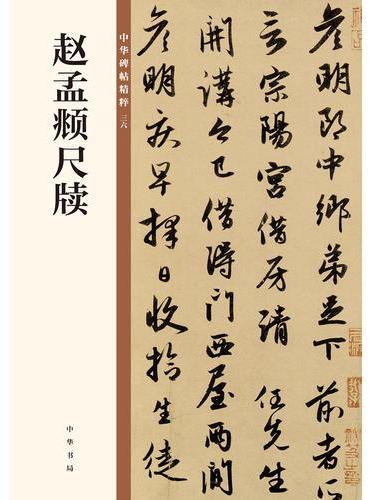 赵孟𫖯尺牍
中华碑帖精粹 三六
中华书局
彦明郎中鄉弟足下 前者所
言宗陽宮借房請 任先生
開講今已借得門西屋兩間
彦明疾早擇日收拾生徒